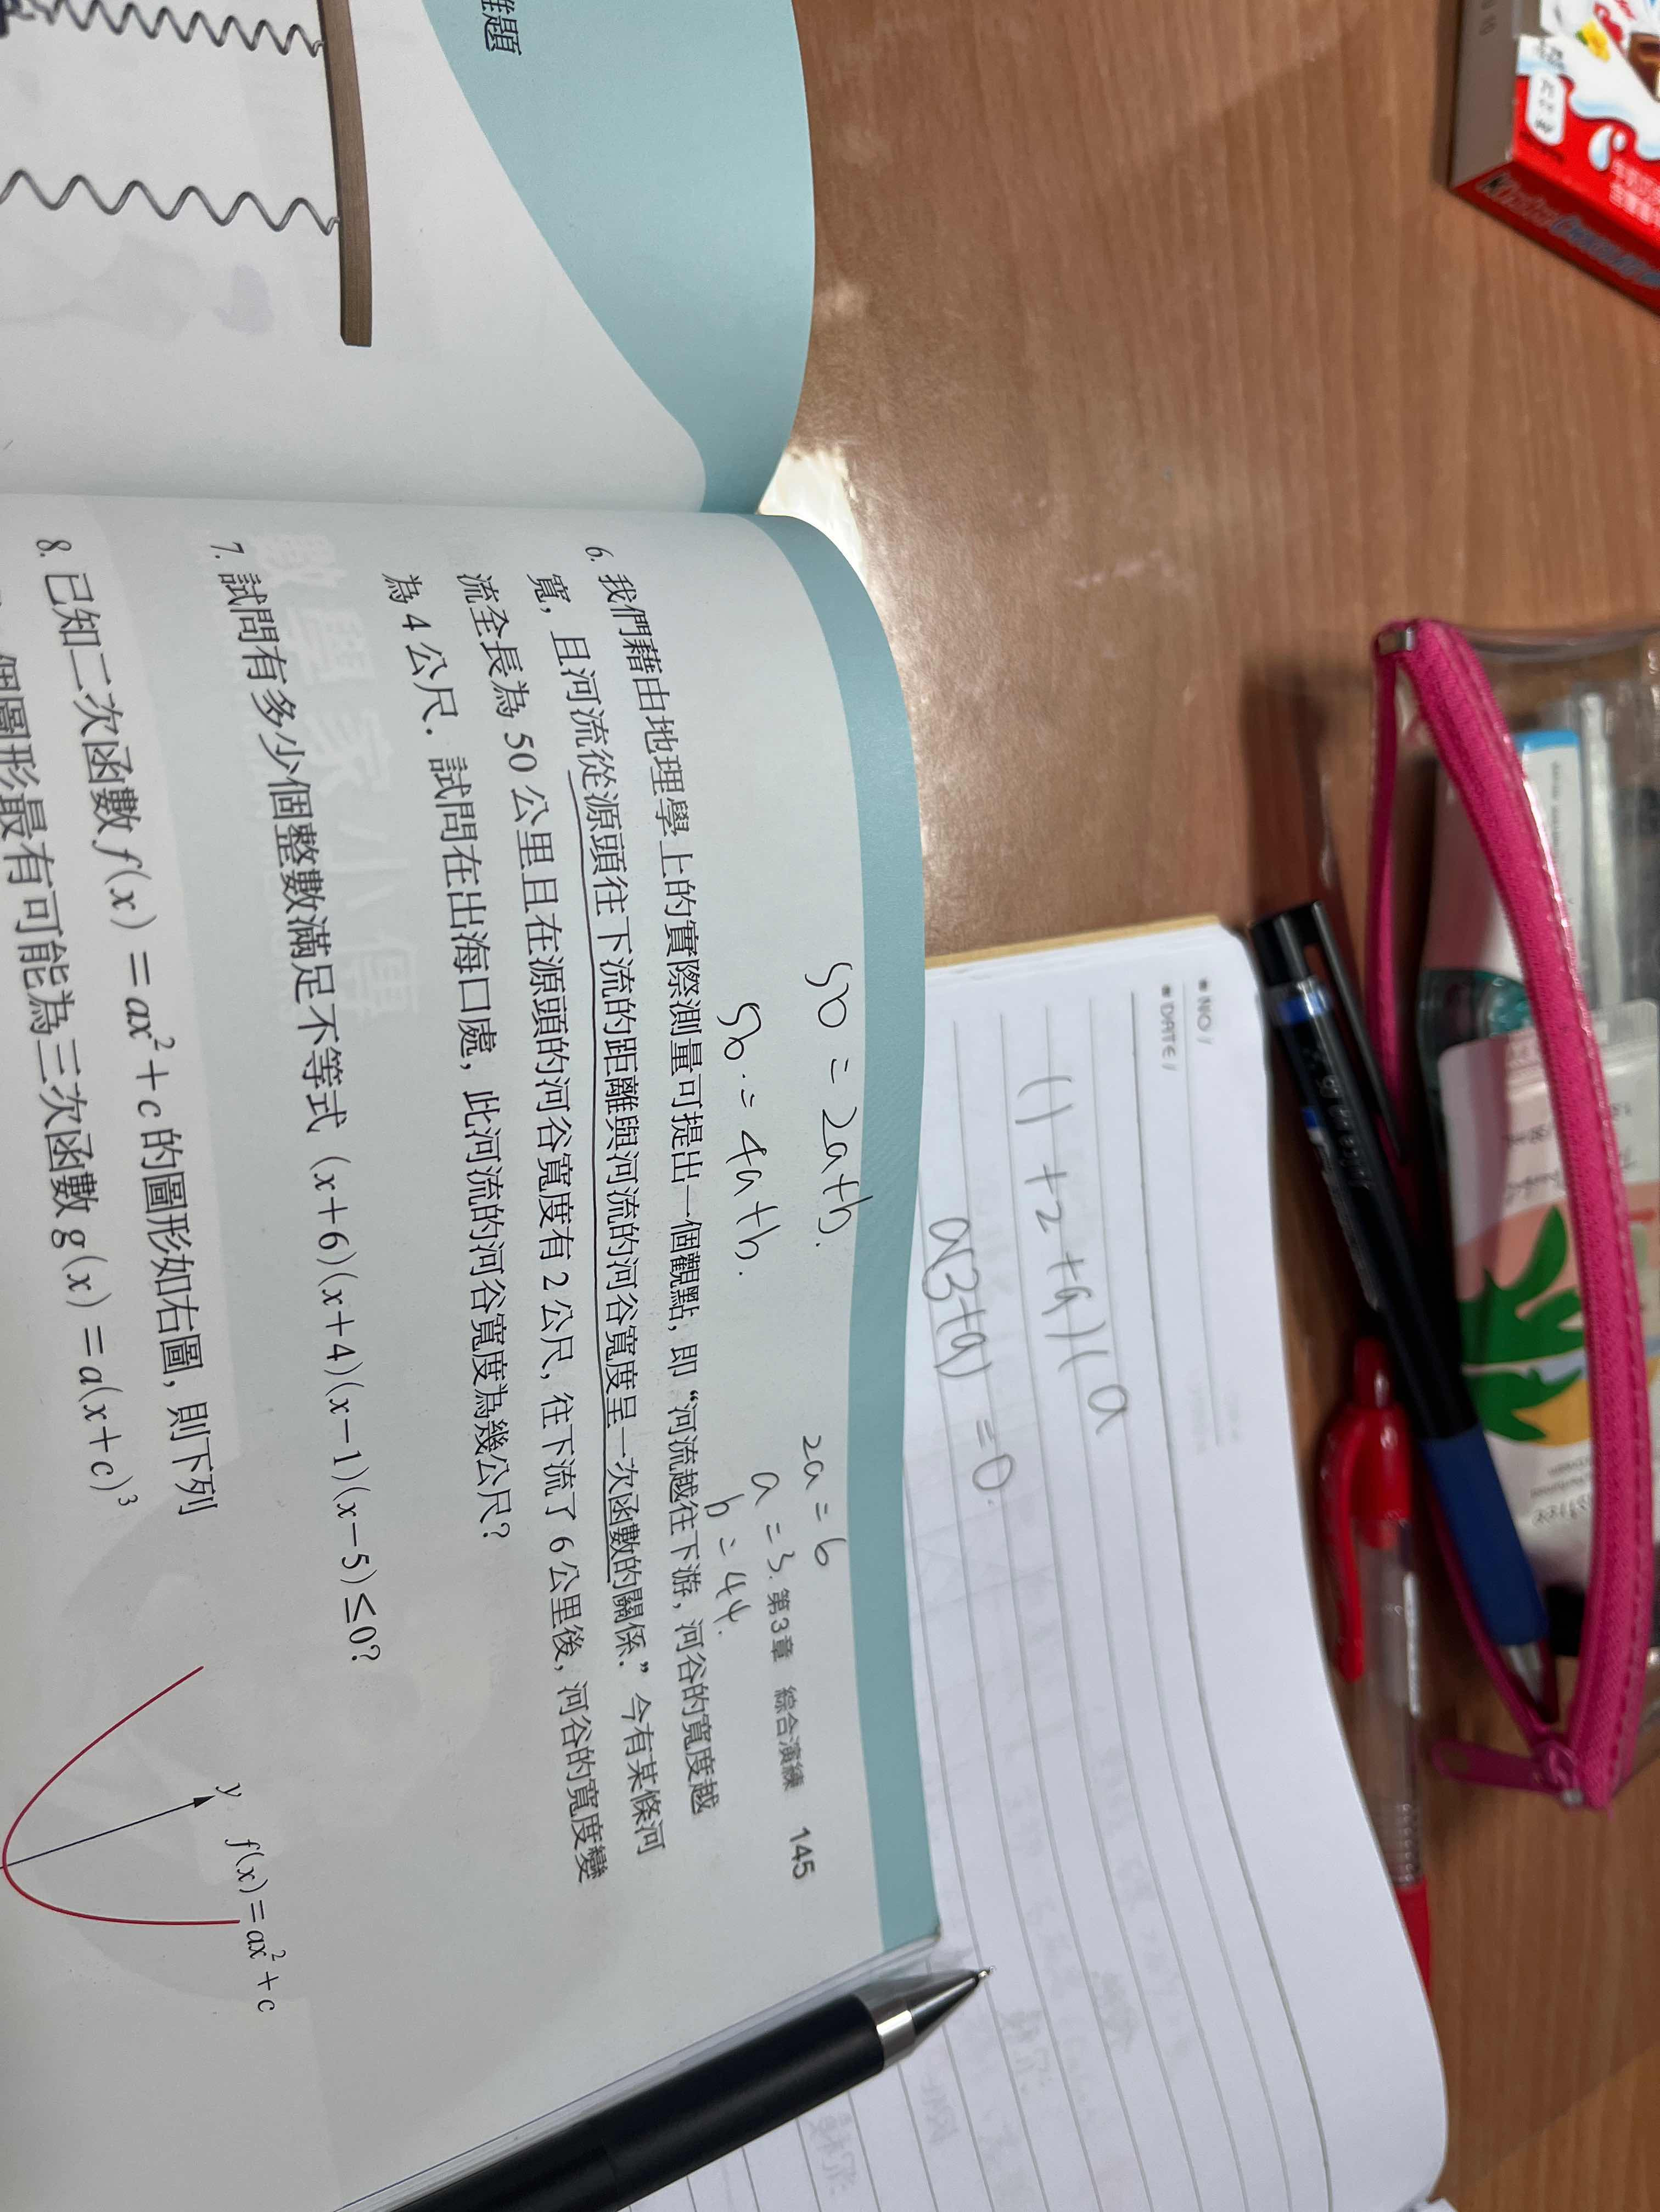 難題
第3章 綜合演練 145
50 = 2a+b.
2a = 6
50. = 4a+b.
a = 3.
b = 44.
6. 我們藉由地理學上的實際測量可提出一個觀點, 即“河流越往下游, 河谷的寬度越
寬, 且河流從源頭往下流的距離與河流的河谷寬度呈一次函數的關係.” 今有某條河
流全長為 50 公里且在源頭的河谷寬度有 2 公尺, 往下流了 6 公里後, 河谷的寬度變
為 4 公尺. 試問在出海口處, 此河流的河谷寬度為幾公尺?
7. 試問有多少個整數滿足不等式 (x+6)(x+4)(x−1)(x−5)≤0?
8. 已知二次函數 f(x) = ax²+c 的圖形如右圖, 則下列
個圖形最有可能為三次函數 g(x) = a(x+c)³
y
f(x)=ax²+c
NO /
DATE /
(1+2+a)(a
a(3+a) = 0.
Kinder